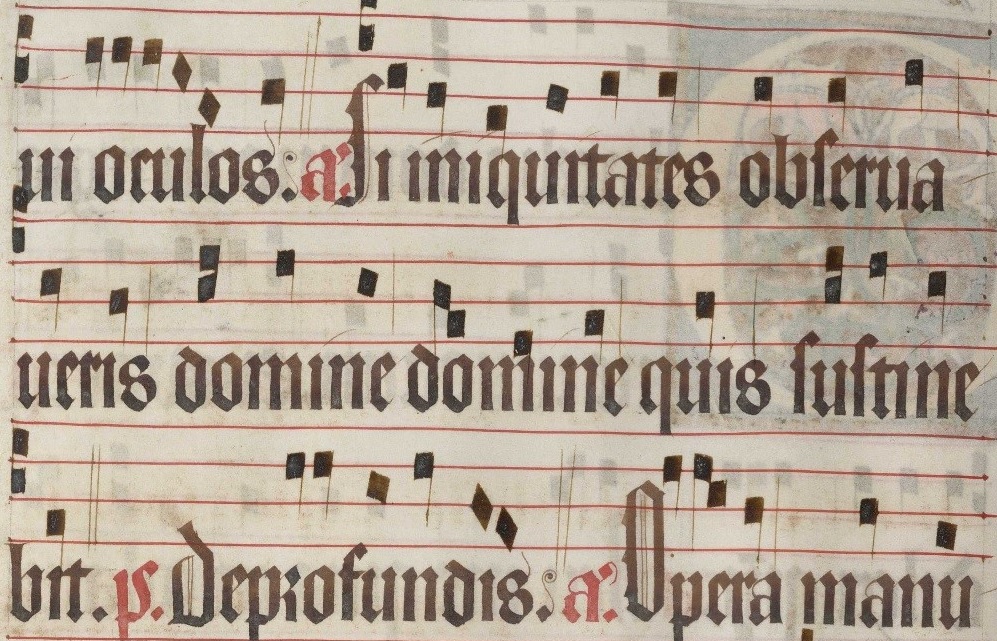 ui oculos. a. Si iniquitates obserua
ueris domine domine quis sustine
bit. ps. De profundis. a. Opera manu